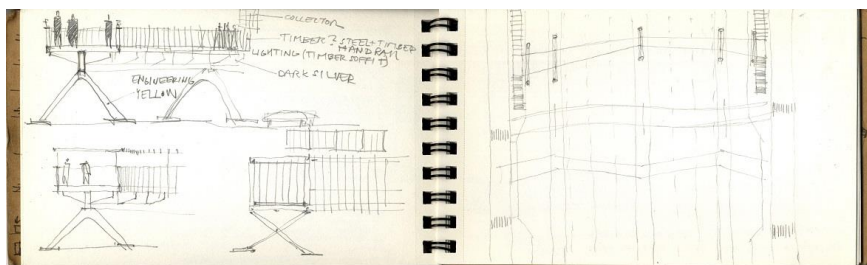 COLLECTOR
TIMBER? STEEL + TIMBER
HANDRAIL
LIGHTING (TIMBER SOFFIT)
DARK SILVER
ENGINEERING
YELLOW